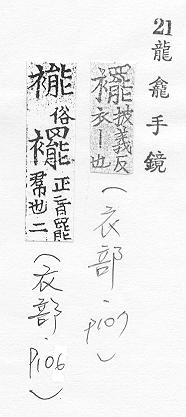 21 龍龕手鏡
䙰 披義反
衣丨也
(衣部·P107)
䙓 俗 䙰 正音罷
帬也二
(衣部·P106)